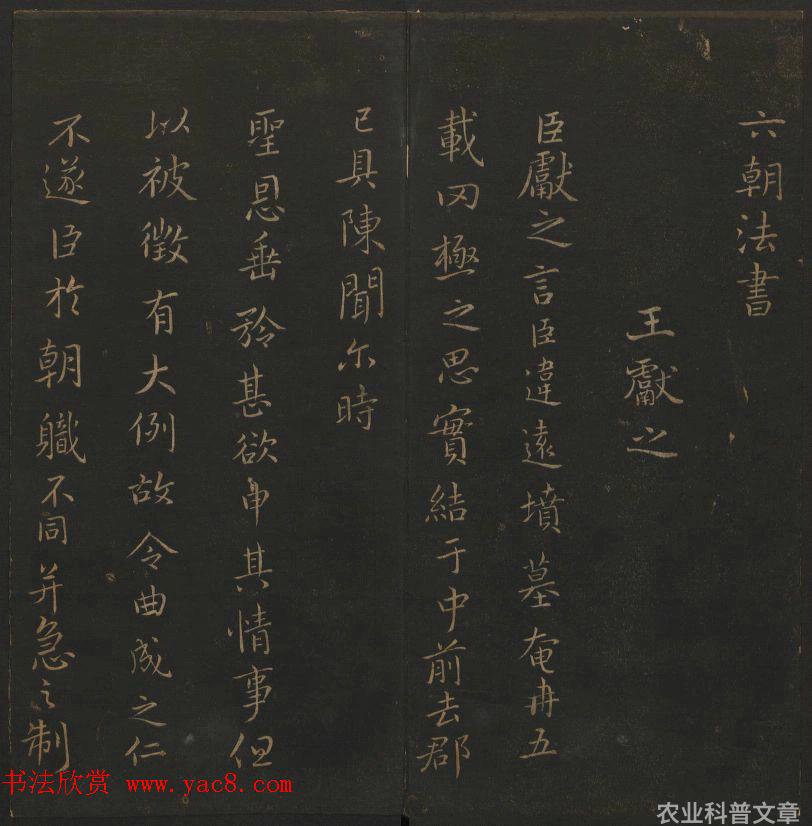 六朝法書
王獻之
臣獻之言臣違遠墳墓奄冉五
載罔極之思實結于中前去郡
已具陳聞尔時
聖恩垂矜甚欲申其情事但
以被徵有大例故令曲成之仁
不遂臣於朝軄不同并急之制
书法欣赏 www.yac8.com
农业科普文章